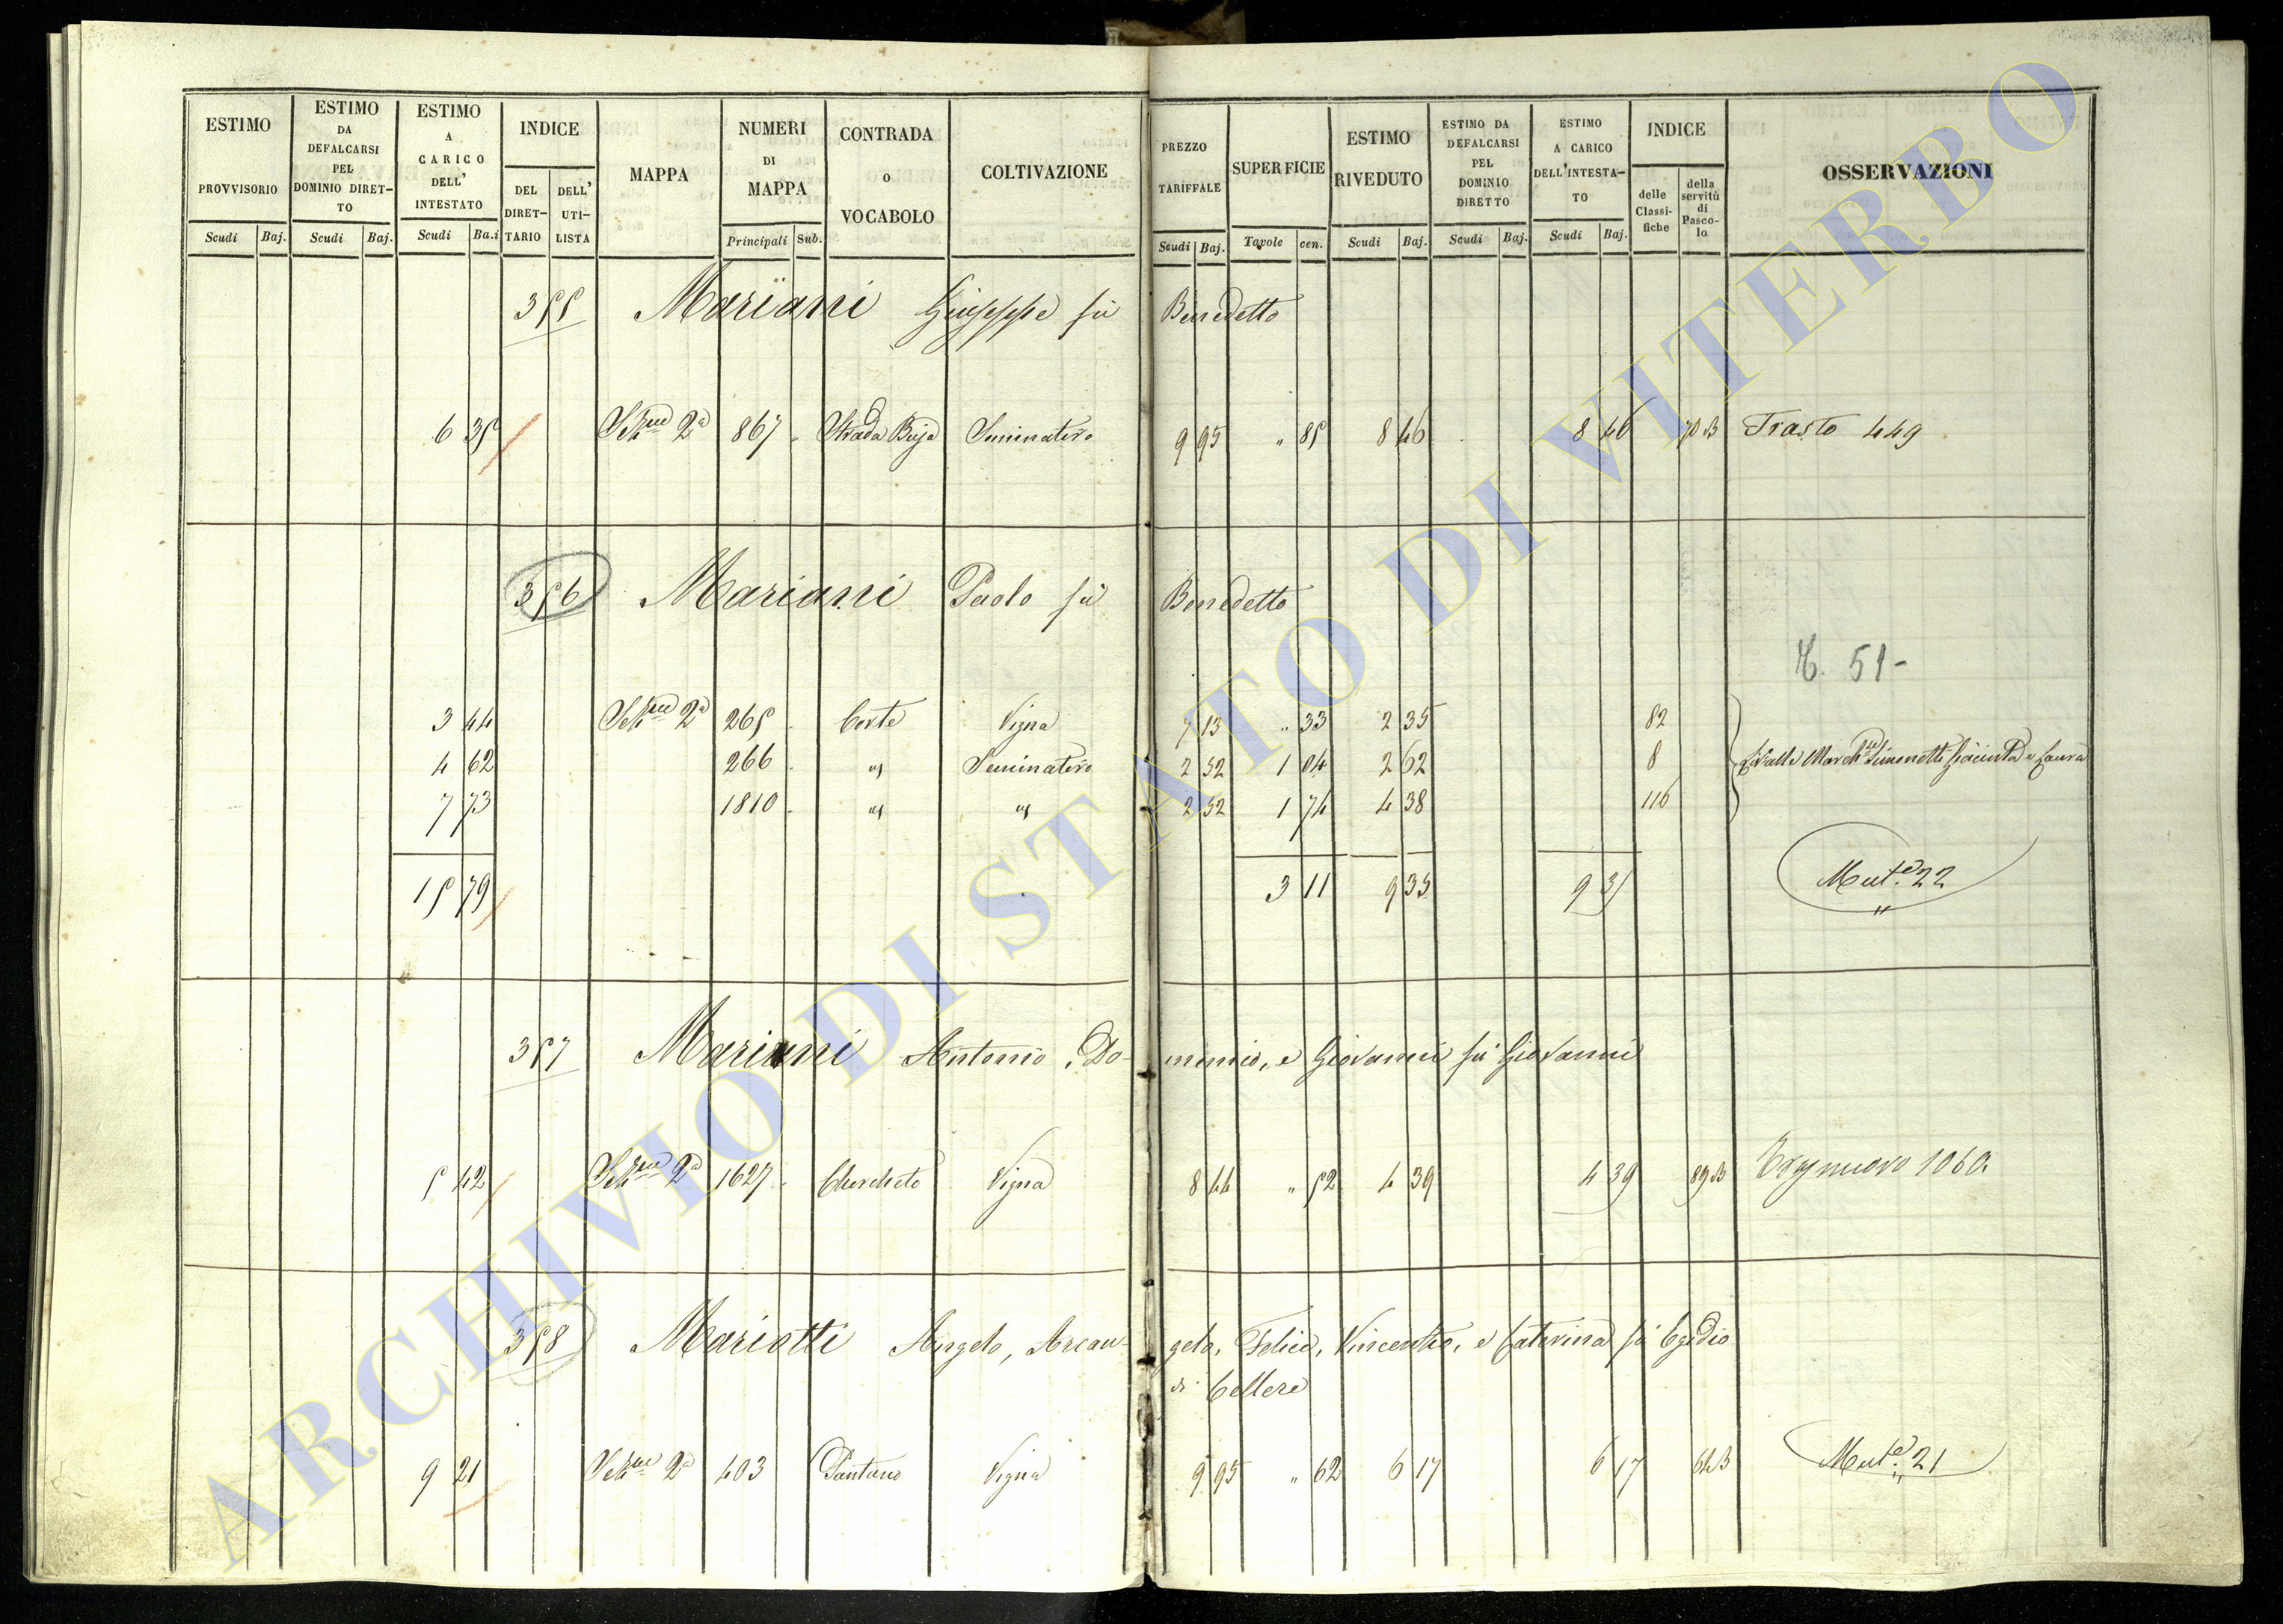 ESTIMO PROVVISORIO
Scudi Baj.
ESTIMO DA DEFALCARSI PEL DOMINIO DIRET-TO
Scudi Baj.
ESTIMO A CARICO DELL' INTESTATO
Scudi Ba.i
INDICE
DEL DIRET-TARIO
DELL' UTI-LISTA
MAPPA
NUMERI DI MAPPA
Principali Sub.
CONTRADA o VOCABOLO
COLTIVAZIONE
PREZZO TARIFFALE
Scudi Baj.
SUPERFICIE
Tavole cen.
ESTIMO RIVEDUTO
Scudi Baj.
ESTIMO DA DEFALCARSI PEL DOMINIO DIRETTO
Scudi Baj.
ESTIMO A CARICO DELL'INTESTA-TO
Scudi Baj.
INDICE
delle Classi-fiche
della servitù di Pasco-lo
OSSERVAZIONI
355 Mariani Giuseppe fu Benedetto
6 35 Sezne 2a 867 Strada Buja Seminativo 9 95 " 85 8 46 8 46 70 B Trasto 449
356 Mariani Paolo fu Benedetto
C. 51-
3 44 Sezne 2a 265 Corte Vigna 7 13 " 33 2 35 82
4 62 266 " Seminativo 2 52 1 04 2 62 8 Simonetti Giacinta e Laura
7 73 1810 " " 2 52 1 74 4 38 116
15 79 3 11 9 35 9 35 Muta 22
357 Mariani Antonio, Do-menico, e Giovanni fu Giovanni
5 42 Sezne 2a 1627 Chercheto Vigna 8 44 " 52 4 39 4 39 89 B 1060.
358 Mariotti Angelo, Arcan-gelo, Felice, Vincenzo, e Caterina fu Egidio
di Cellere
9 21 Sezne 2a 403 Pantano Vigna 9 95 " 62 6 17 6 17 B Muta 21
ARCHIVIO DI STATO DI VITERBO